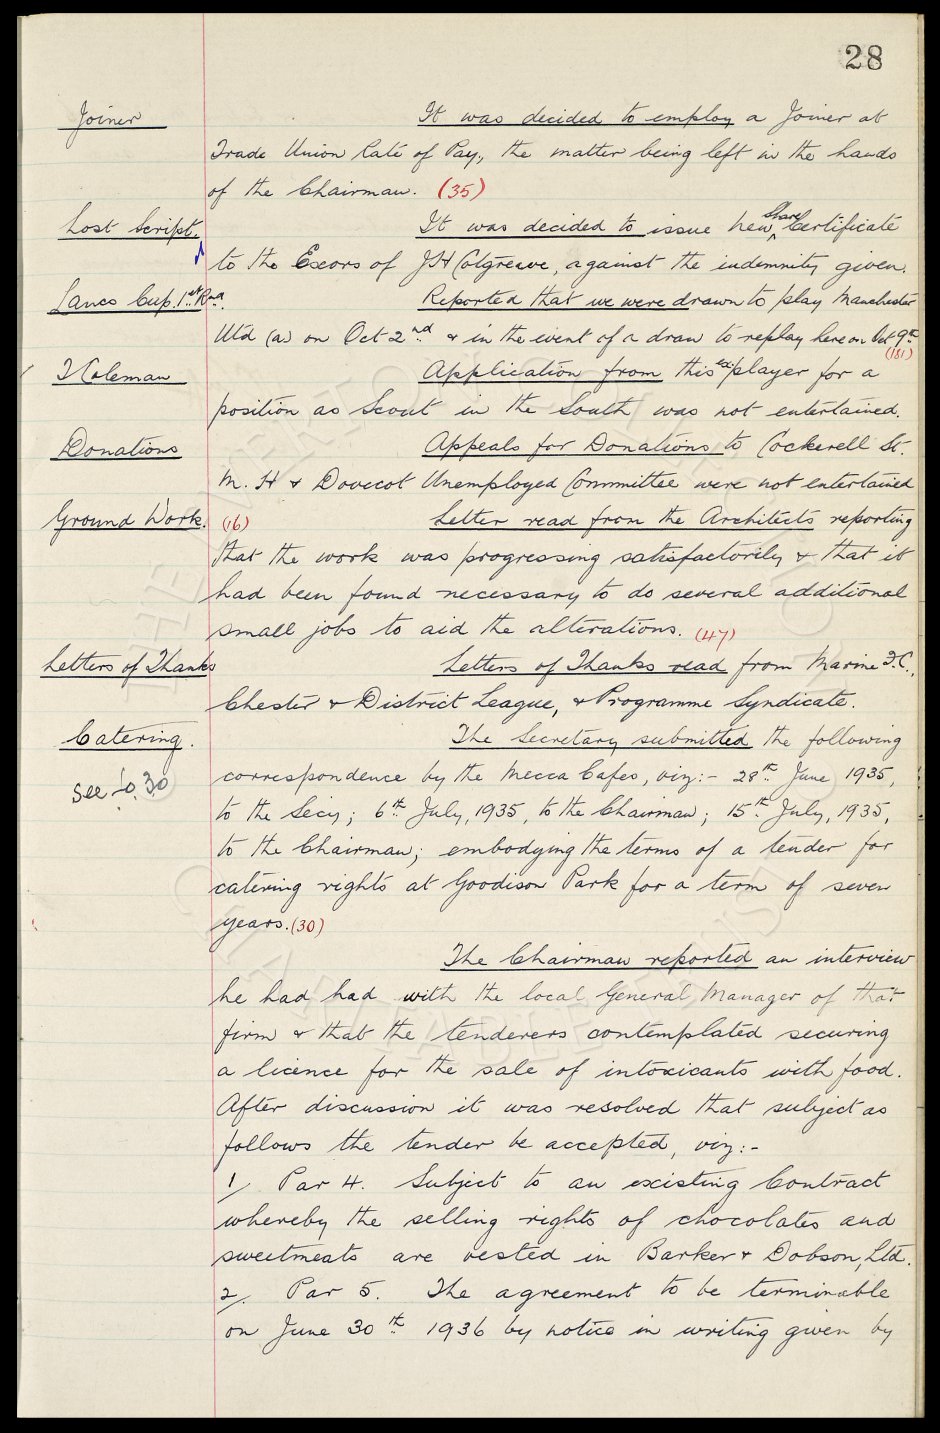 28
Joiner
It was decided to employ a Joiner at
Trade Union Rate of Pay, the matter being left in the hands
of the Chairman. (35)
Lost Script.
It was decided to issue new Share Certificate
to the Exors of J H Cotgreave, against the indemnity given.
Lancs Cup. 1st Rnd.
Reported that we were drawn to play Manchester
Utd (a) on Oct 2nd & in the event of a draw to replay here on Oct 9th
(181)
T Coleman
Application from this ex player for a
position as Scout in the South was not entertained.
Donations
Appeals for Donations to Cockerell St.
M. H & Dovecot Unemployed Committee were not entertained
Ground Work. (16)
Letter read from the Architects reporting
that the work was progressing satisfactorily & that it
had been found necessary to do several additional
small jobs to aid the alterations. (47)
Letters of Thanks
Letters of Thanks read from Marine F.C.,
Chester & District League, & Programme Syndicate.
Catering.
The Secretary submitted the following
see fo. 30
correspondence by the Mecca Cafes, viz:- 28th June 1935,
to the Secy; 6th July, 1935, to the Chairman; 15th July, 1935,
to the Chairman; embodying the terms of a tender for
catering rights at Goodison Park for a term of seven
years. (30)
The Chairman reported an interview
he had had with the local General Manager of that
firm & that the tenderers contemplated securing
a licence for the sale of intoxicants with food.
After discussion it was resolved that subject as
follows the tender be accepted, viz:-
1/ Par 4. Subject to an existing Contract
whereby the selling rights of chocolates and
sweetmeats are vested in Barker & Dobson, Ltd.
2/. Par 5. The agreement to be terminable
on June 30th 1936 by notice in writing given by